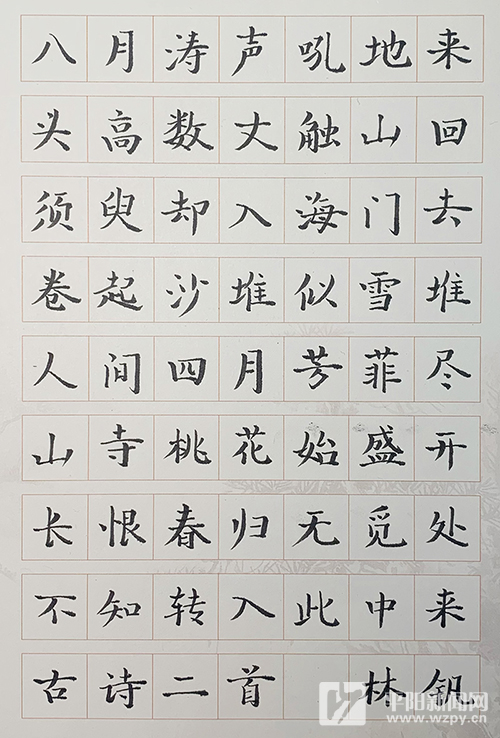 八月涛声吼地来
头高数丈触山回
须臾却入海门去
卷起沙堆似雪堆
人间四月芳菲尽
山寺桃花始盛开
长恨春归无觅处
不知转入此中来
古诗二首 林钒
平阳新闻网
www.wzpy.cn